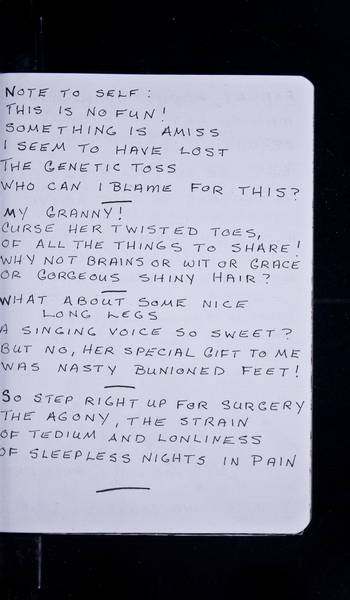 NOTE TO SELF:
THIS IS NO FUN!
SOMETHING IS AMISS
I SEEM TO HAVE LOST
THE GENETIC TOSS
WHO CAN I BLAME FOR THIS?
MY GRANNY!
CURSE HER TWISTED TOES,
OF ALL THE THINGS TO SHARE!
WHY NOT BRAINS OR WIT OR GRACE
OR GORGEOUS SHINY HAIR?
WHAT ABOUT SOME NICE
LONG LEGS
A SINGING VOICE SO SWEET?
BUT NO, HER SPECIAL GIFT TO ME
WAS NASTY BUNIONED FEET!
SO STEP RIGHT UP FOR SURGERY
THE AGONY, THE STRAIN
OF TEDIUM AND LONLINESS
OF SLEEPLESS NIGHTS IN PAIN